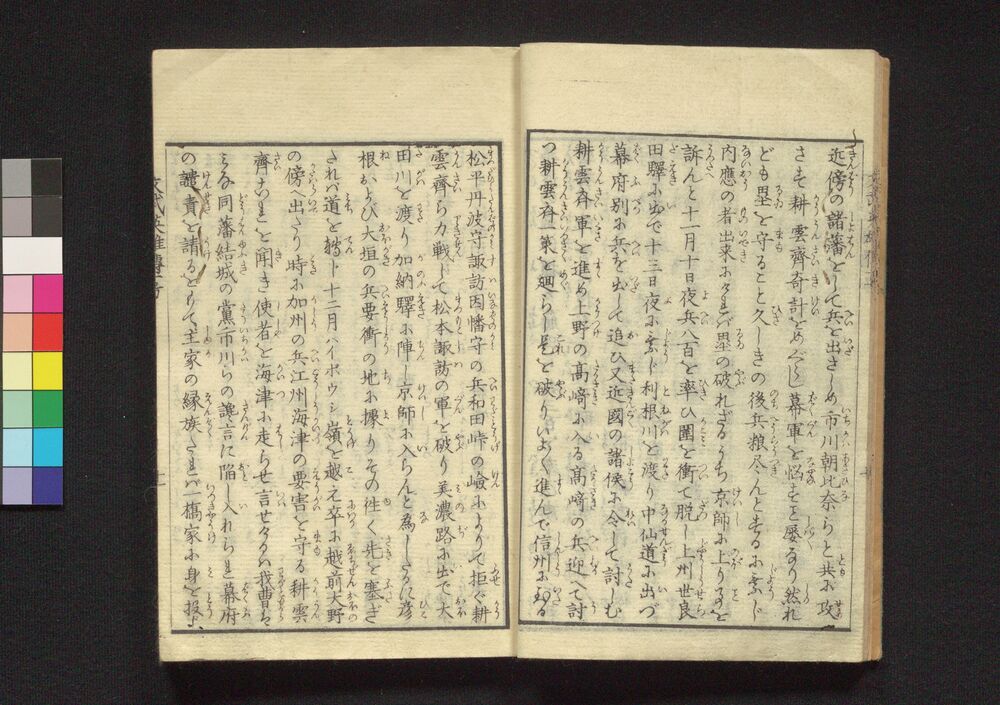 近傍の諸藩をして兵を出さしめ市川朝比奈らと共に攻
さす耕雲齊奇計をめぐらし幕軍を悩すと屡なり然れ
ども塁を守ること久しきの後兵粮尽んとするに及び
内應の者出来にけれバ塁の破れざるうち京師に上りて
訴んと十一月十日夜兵八百を率ひ圍を衝て脱し上州世良
田驛に出で十三日夜に及び利根川を渡り中仙道に出づ
幕府別に兵を出して追ひ又近國の諸侯に令して討しむ
耕雲齊軍を進め上野の髙﨑に入る髙﨑の兵迎て討
つ耕雲齊一策を廻らし是を破りいよ〳〵進んで信州にいる
松平丹波守諏訪因幡守の兵和田峠の嶮によりて拒ぐ耕
雲齊ら力戦して松本諏訪の軍を破り美濃路に出で太
田川を渡り加納驛に陣し京師に入らんと爲しけるに彦
根および大垣の兵要衝の地に據りその徃く先を塞ぎ
されバ道を轉じ十二月ハイボウシ嶺を越え卒に越前大野
の傍に出たり時に加州の兵江州海津の要害を守る耕雲
齊これを聞き使者を海津に走らせ言せけるハ我曹は
同藩結城の黨市川らの讒言に陥し入れられ幕府
の譴責を請るをもて主家の縁族たれバ一橋家に身を投